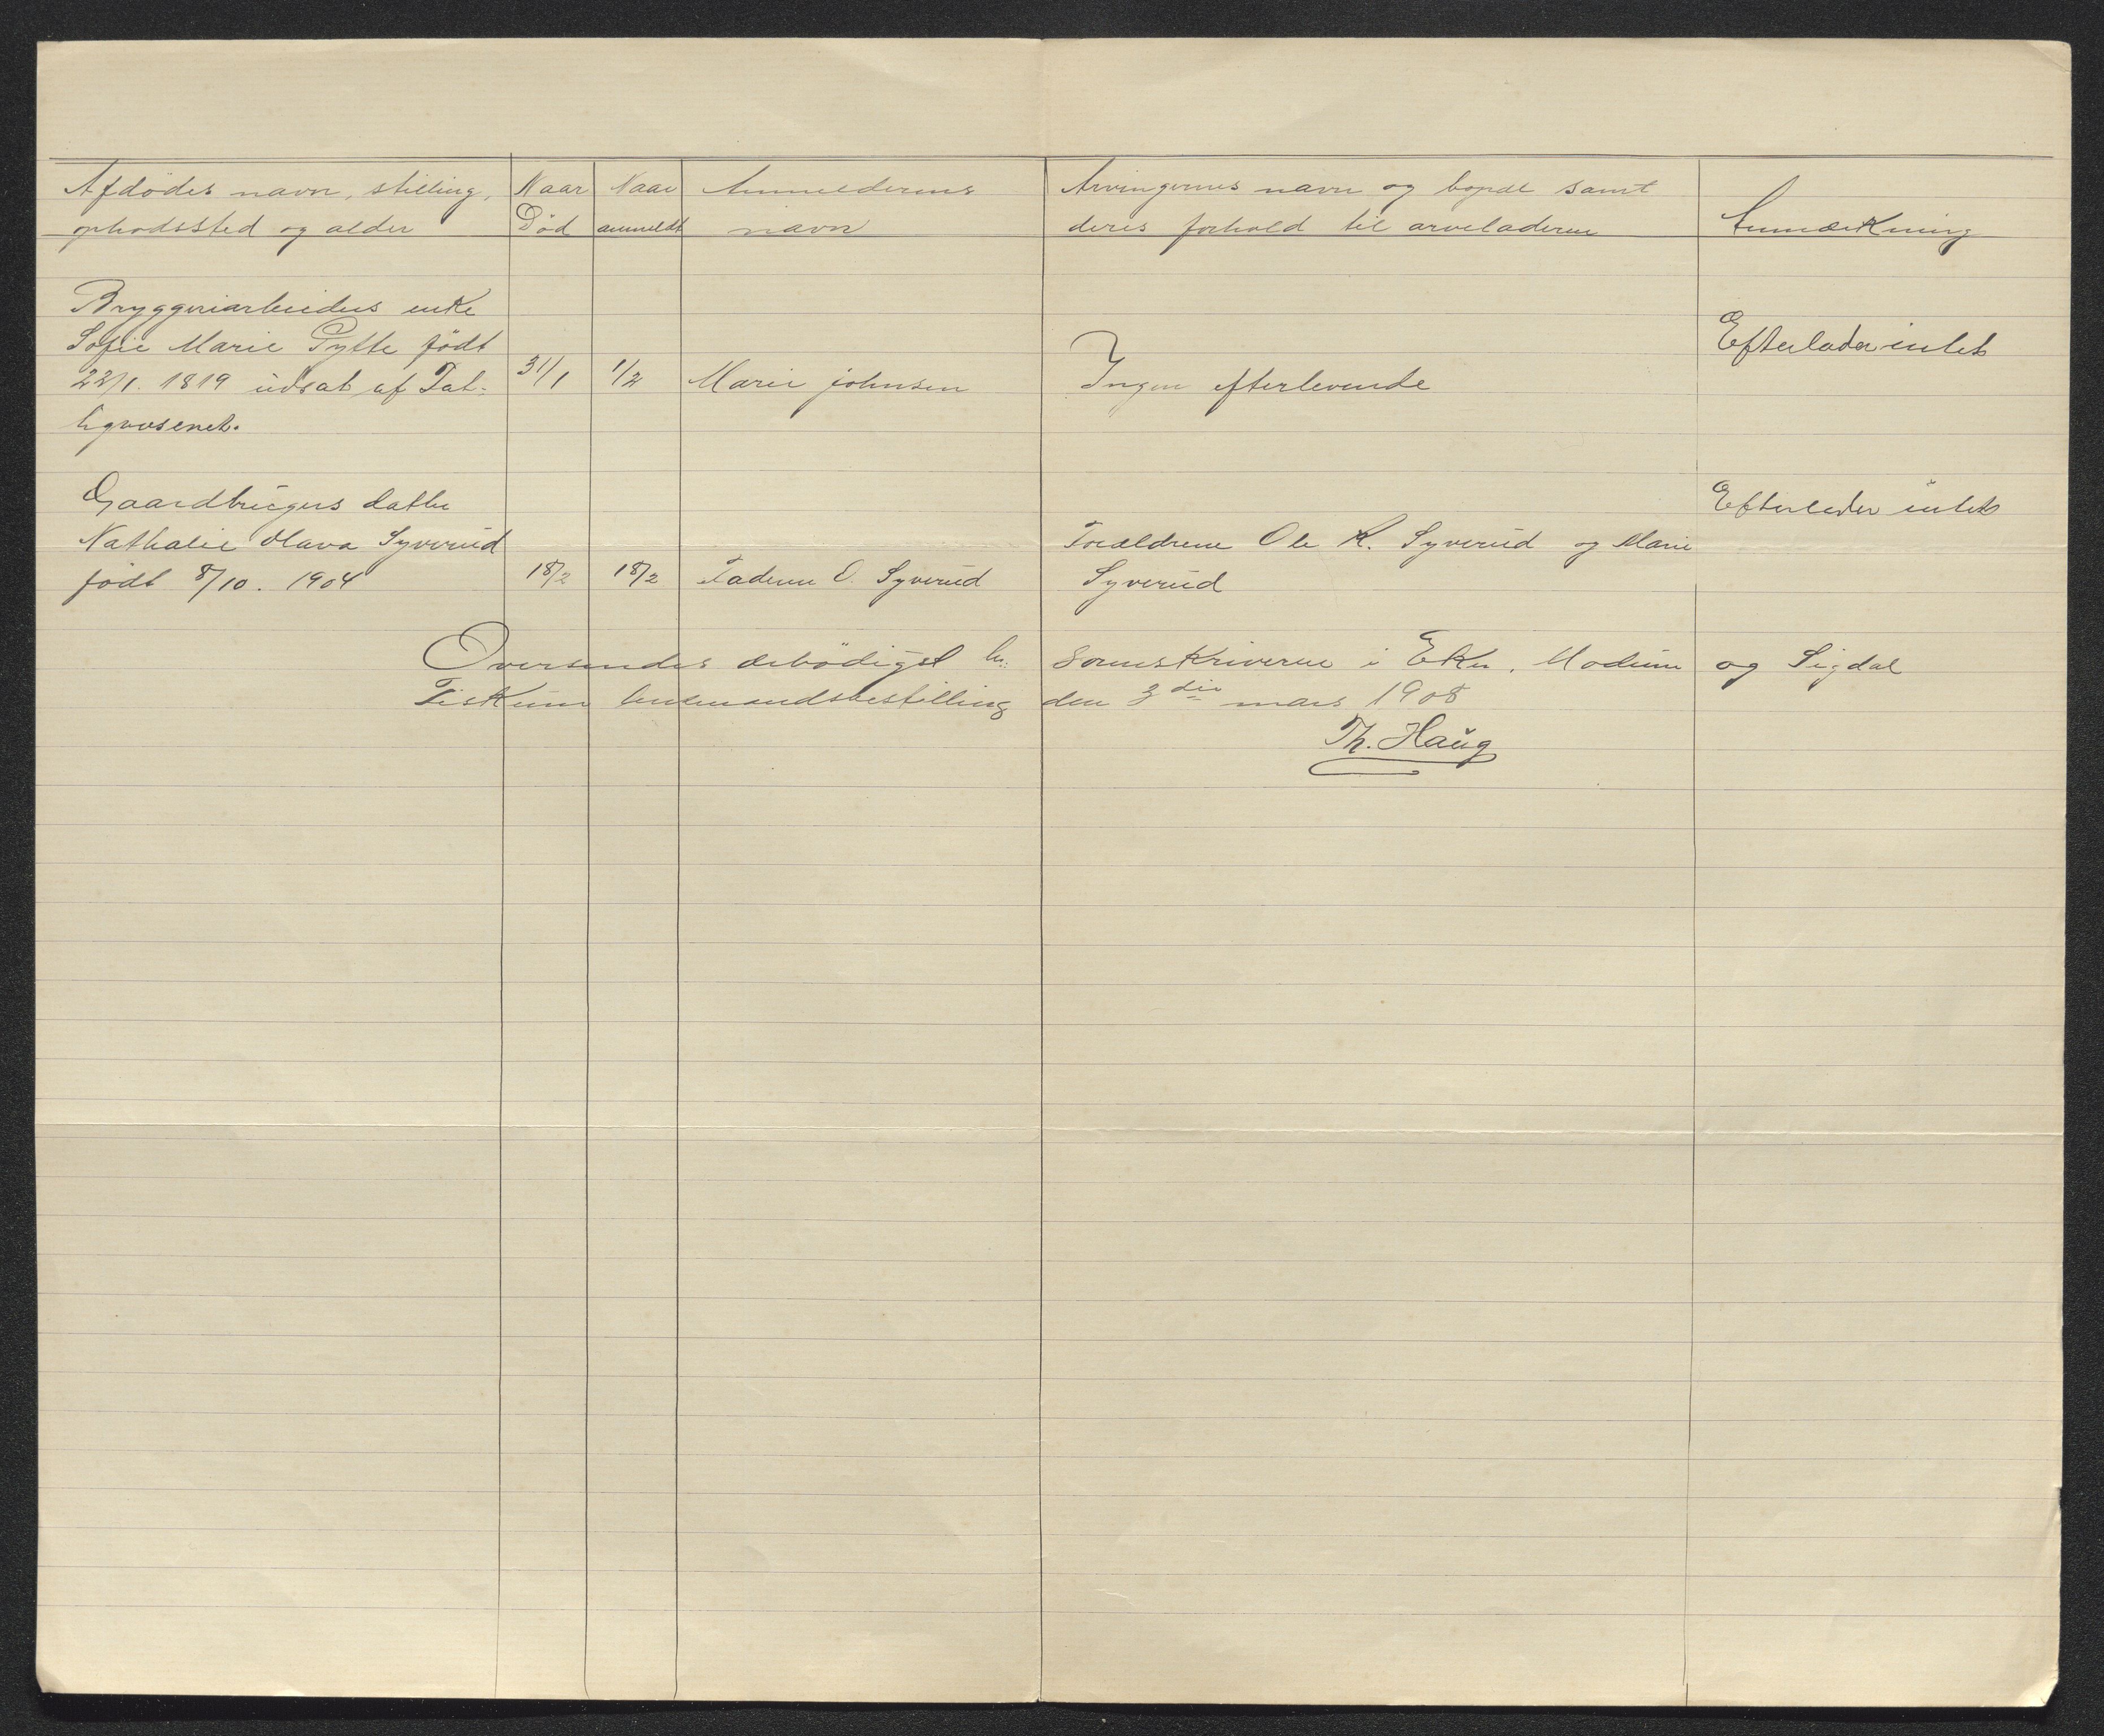 Afdödes navn, stilling,
opholdssted og alder
Naar
Död
Naar
anmeldt
Anmelderens
navn
Arvingernes navn og bopæl samt
deres forhold til arveladeren
Anmærkning
Bryggeriarbeiders enke
Sofie Marie Pytte födt
22/1. 1819 udsat af Fat-
tigvæsenet.
31/1
1/2
Marie johnsen
Ingen efterlevende
Efterlader intet
Gaardbrugers datter
Nathalie Olava Syverud
födt 8/10. 1904
18/2
18/2
Faderen O. Syverud
Forældrene Ole K. Syverud og Marie
Syverud
Efterlader intet
Oversendes ærbödigst hr: Sorenskriveren i Eker, Modum og Sigdal
Fiskum lensmandsbestilling den 3die mars 1908
Th. Haug